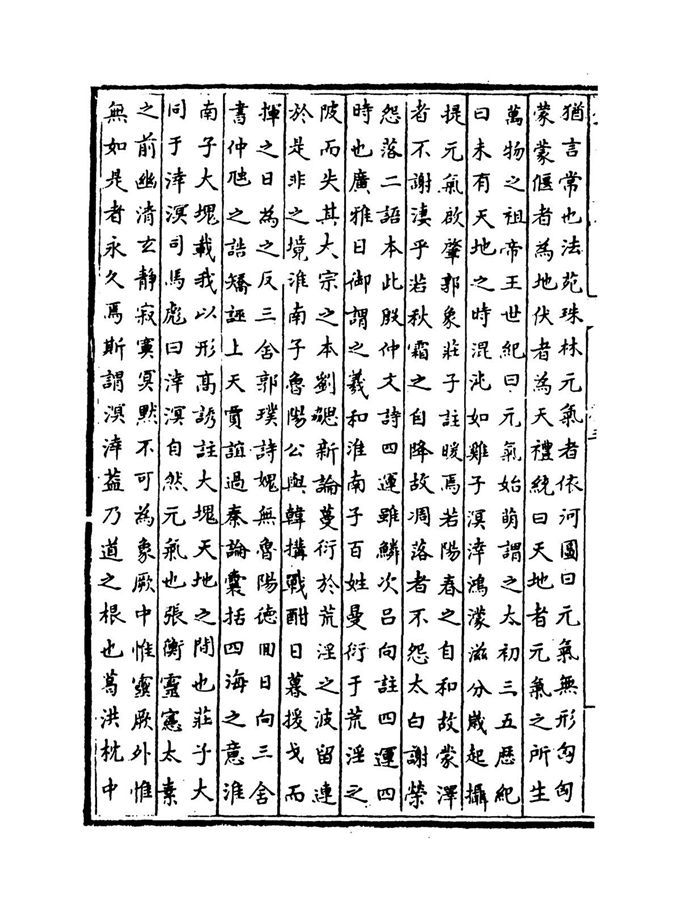 猶言常也法苑珠林元氣者依河圖曰元氣無形匈匈
蒙蒙偃者為地伏者為天禮統曰天地者元氣之所生
萬物之祖帝王世紀曰元氣始萌謂之太初三五歴紀
曰未有天地之時混沌如雞子溟涬鴻濛滋分嵗起攝
提元氣啟肇郭象莊子註暖焉若陽春之自和故蒙澤
者不謝淒乎若秋霜之自降故凋落者不怨太白謝榮
怨落二語本此殷仲文詩四運雖鱗次吕向註四運四
時也廣雅日御謂之羲和淮南子百姓曼衍于荒淫之
陂而失其大宗之本劉勰新論蔓衍於荒淫之波留連
於是非之境淮南子魯陽公與韓搆戰酣日暮援戈而
揮之日為之反三舍郭璞詩媿無魯陽徳囘日向三舍
書仲虺之誥矯誣上天賈誼過秦論囊括四海之意淮
南子大塊載我以形髙誘註大塊天地之間也莊子大
同于涬溟司馬彪曰涬溟自然元氣也張衡靈憲太素
之前幽清玄靜寂寞冥黙不可為象厥中惟靈厥外惟
無如是者永久焉斯謂溟涬葢乃道之根也葛洪枕中